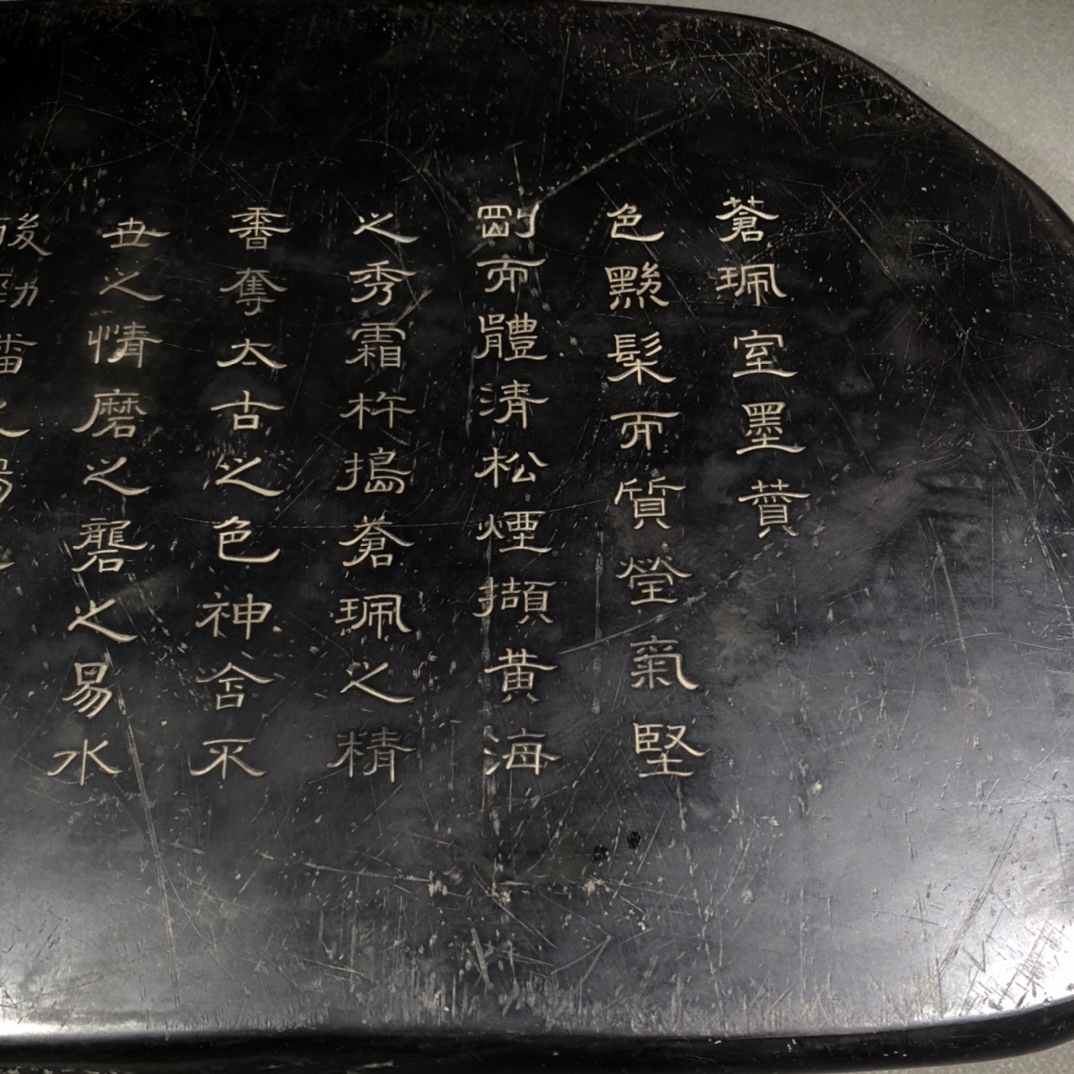 蒼珮室墨贊
色黟髹而質瑩氣堅
剛而體清松煙擷黃海
之秀霜杵搗蒼珮之精
香奪太古之色神含不
世之情磨之礱之易水